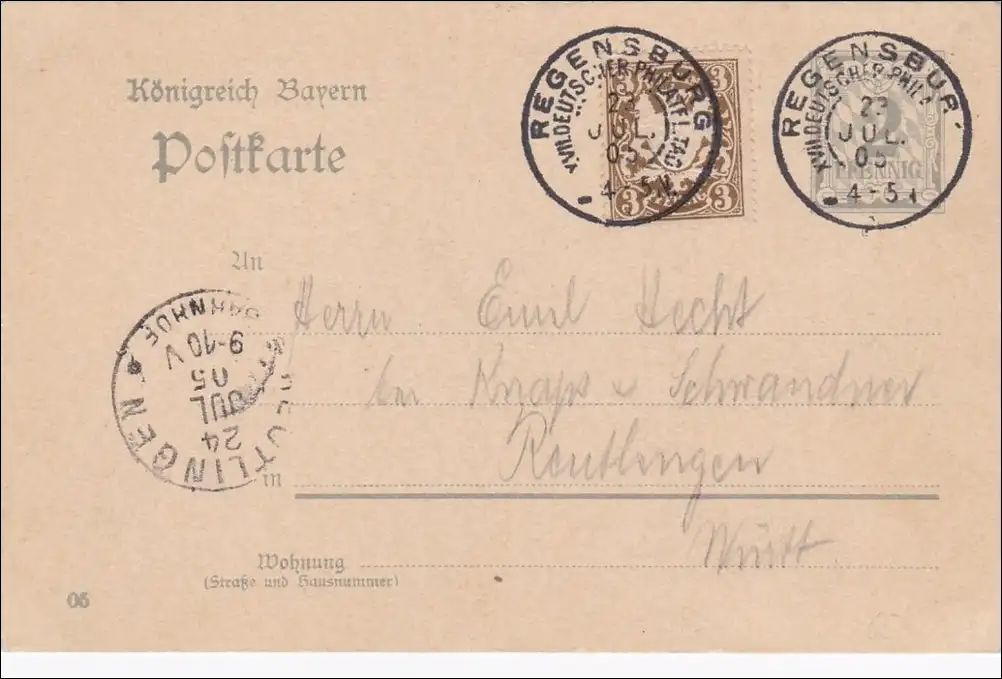 REGENSBURG
XVII.DEUTSCHER PHILATEL.TAG
23
JUL.
05
4-5 N.
3 3
3 3
REGENSBUR
XVII.DEUTSCHER PHIL
23
JUL.
05
4-5
2
PFENNIG
Königreich Bayern
Postkarte
An
Herrn Emil Hecht
bei Knapp u Schwandner
Reutlingen
in
Württ.
REUTLINGEN
BAHNHOF
9-10 V
05
JUL
24
Wohnung
(Straße und Hausnummer)
05